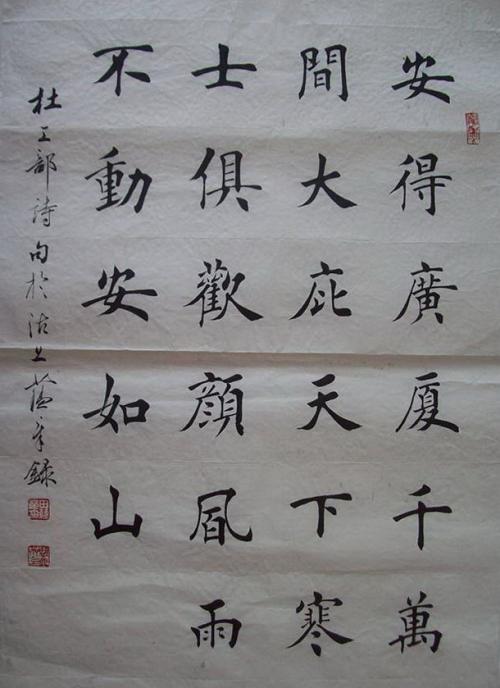 安得廣厦千萬
間大庇天下寒
士俱歡顔風雨
不動安如山
杜工部詩句於沽上錄